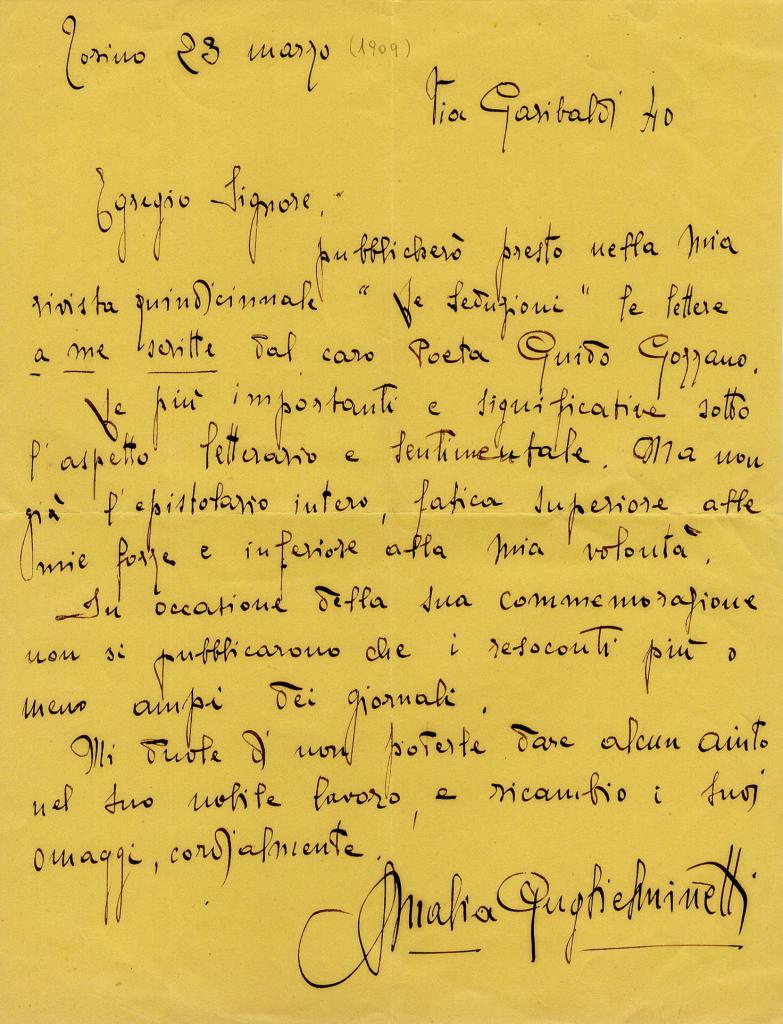 Torino 23 marzo (1909)
Via Garibaldi 40
Egregio Signore,
pubblicherò presto nella mia
rivista quindicinnale "Le Seduzioni" le lettere
a me scritte dal caro Poeta Guido Gozzano.
Le più importanti e significative sotto
l'aspetto letterario e sentimentale. Ma non
già l'epistolario intero, fatica superiore alle
mie forze e inferiore alla mia volontà.
In occasione della sua commemorazione
non si pubblicarono che i resoconti più o
meno ampi dei giornali.
Mi duole di non poterle dare alcun aiuto
nel suo nobile lavoro, e ricambio i suoi
omaggi, cordialmente.
Amalia Guglielminetti